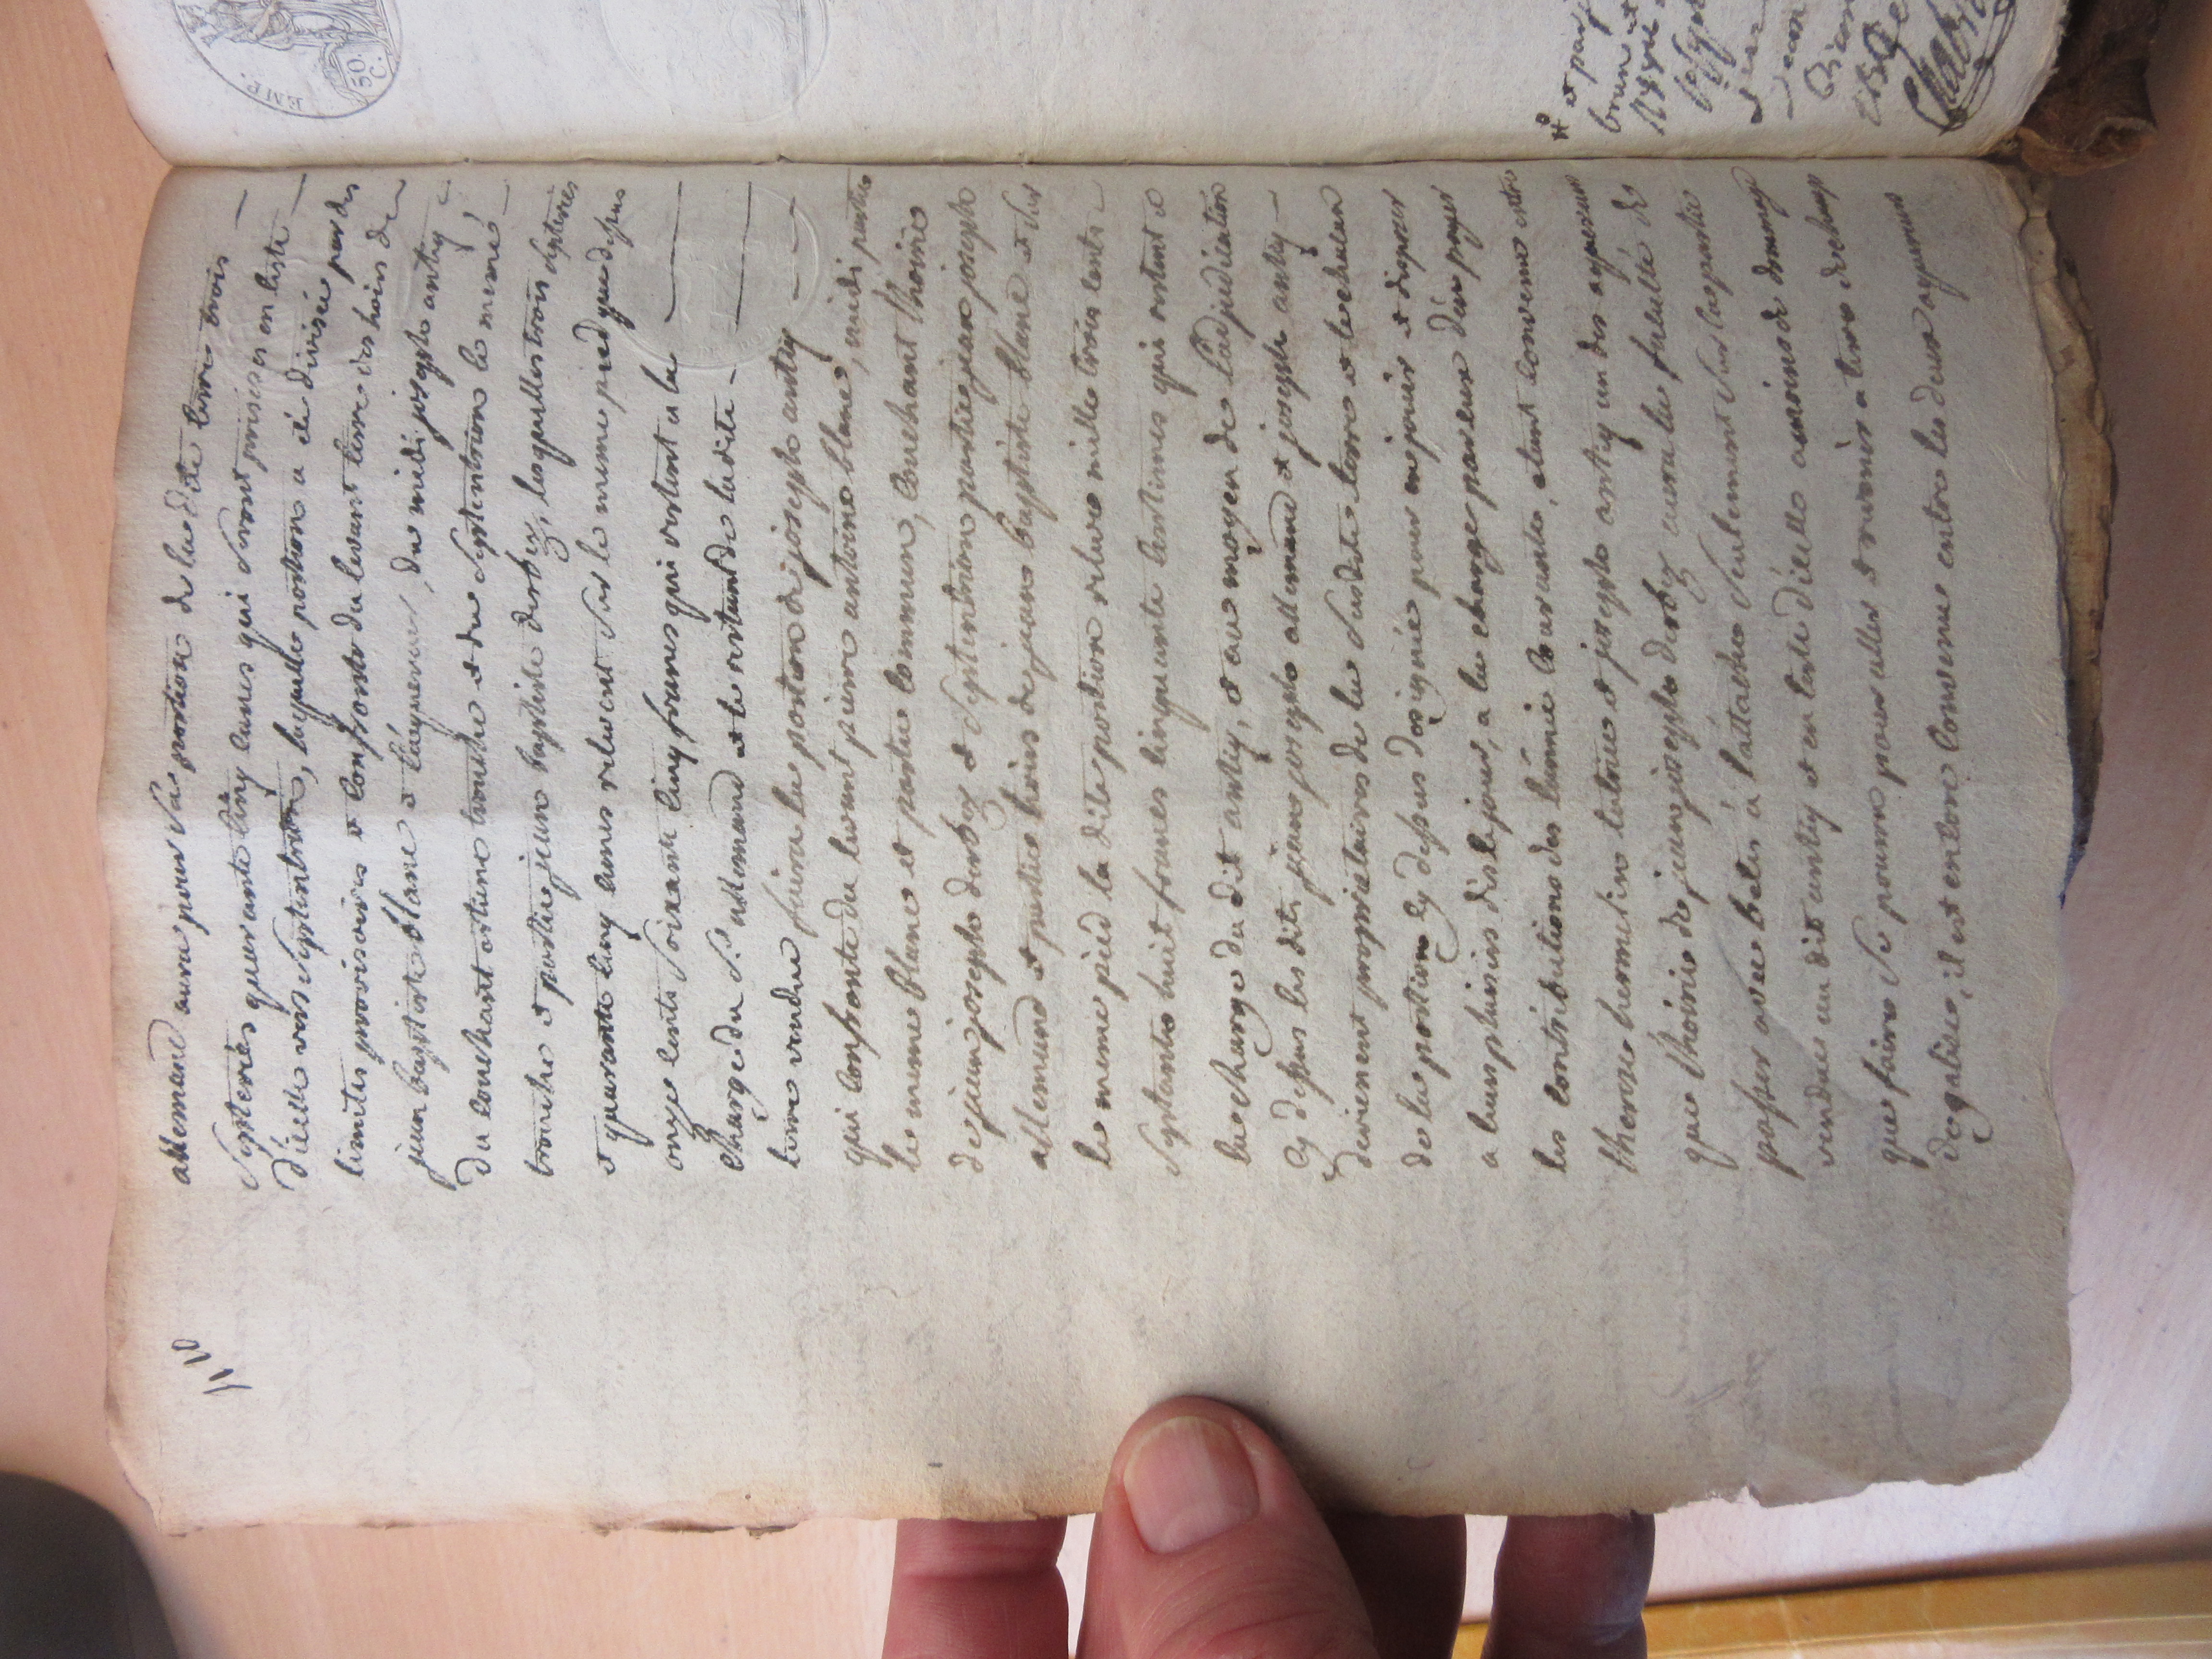 allemand aura pour sa portion de la dite terre trois
septerées quarante cinq cannes qui seront prises en teste
d'icelle vers septentrion, laquelle portion a été divisée par des
limites provisoires & confronte du levant terre des hoirs de
jean baptiste blanc & l'acquereur, du midi joseph antiq
du couchant antoine trouche & du septentrion le meme
trouche & partie jean baptiste derbez, lesquelles trois septerées
& quarante cinq cannes relevent sur le meme pied que dessus
onze cents soixante cinq francs qui restent a la
charge du Sr allemand & le restant de ladite
terre vendue faira la portion de joseph antiq
qui confronte du levant pierre antoine blanc, midi partie
le meme blanc et partie commun, couchant l'hoirie
de jean joseph derbez & septentrion partie jean joseph
allemand & partie hoirs de jean baptiste blanc & sur
le meme pied la dite portion releve mille trois cents
septante huit francs cinquante centimes qui restent a
la charge du dit antiq, & au moyen de l'adjudication
cy dessus les dits jean joseph allemand & joseph antiq
deviennent proprietaires de la susdite terre & le chacun
de la portion cy dessus designée pour en jouir & disposer
a leurs plaisirs dès le jour, a la charge par eux d'en payer
les contributions de l'année courante, etant convenu entre
therese hermelin tutrice & joseph antiq un des acquereurs
que l'hoirie de jean joseph derbez aura la faculté de
passer avec betes a l'attache seulement sur la partie
vendue au dit antiq & en teste d'icelle a moins de dommage
que faire se pourra pour aller & revenir a terre
de galice, il est encore convenu entre les deux acquereurs
EMP.
50 C.
& par
brun et